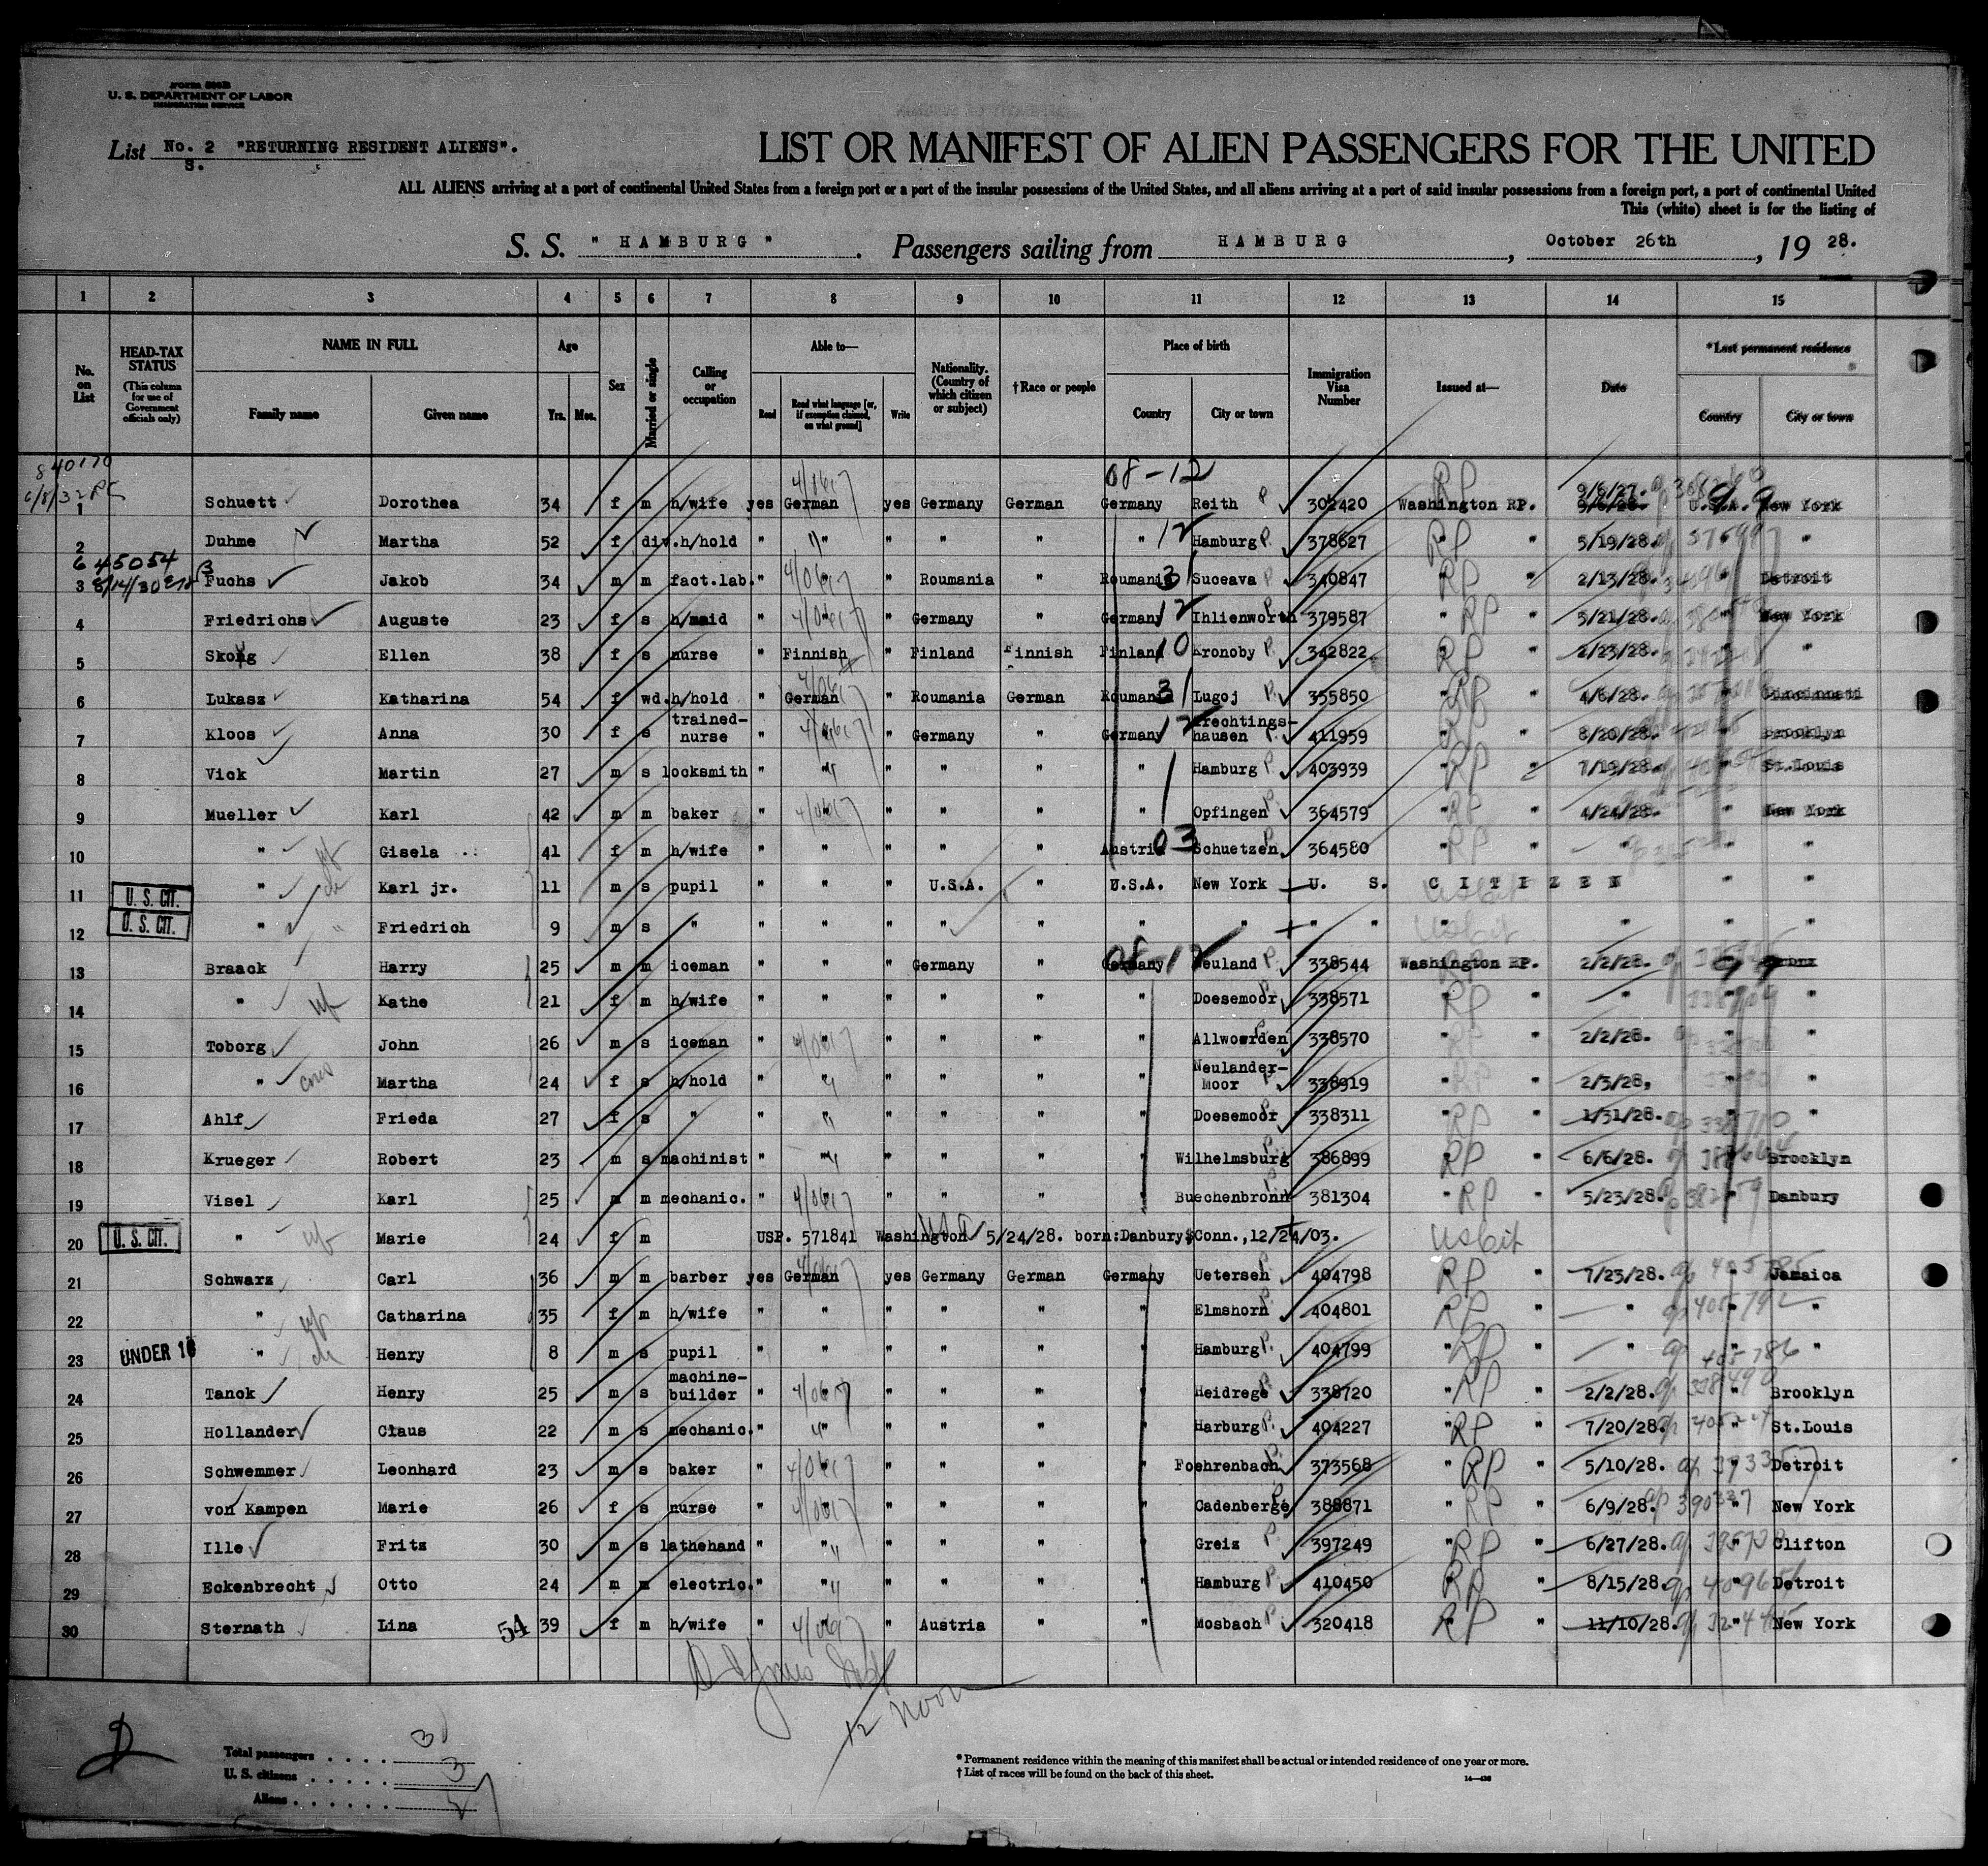 FORM 500B
U. S. DEPARTMENT OF LABOR
IMMIGRATION SERVICE
List No. 2 "RETURNING RESIDENT ALIENS".
S.
LIST OR MANIFEST OF ALIEN PASSENGERS FOR THE UNITED
ALL ALIENS arriving at a port of continental United States from a foreign port or a port of the insular possessions of the United States, and all aliens arriving at a port of said insular possessions from a foreign port, a port of continental United
This (white) sheet is for the listing of
S. S. " HAMBURG " . Passengers sailing from HAMBURG , October 26th , 19 28.
1 2 3 4 5 6 7 8 9 10 11 12 13 14 15
No. on List HEAD-TAX STATUS (This column for use of Government officials only) NAME IN FULL Family name Given name Age Yrs. Mos. Sex Married or single Calling or occupation Able to— Read Read what language [or, if exemption claimed, on what ground] Write Nationality. (Country of which citizen or subject) †Race or people Place of birth Country City or town Immigration Visa Number Issued at— Date *Last permanent residence Country City or town
840170
08-12
6/8/32
1 Schuett Dorothea 34 f m h/wife yes German yes Germany German Germany Reith P 302420 Washington RP. 9/6/27. U.S.A. New York
2 Duhme Martha 52 f div. h/hold " " " " " " 12 Hamburg P. 378627 RP 5/19/28. "
645054
8/14/30
3 Fuchs Jakob 34 m m fact.lab. " " " Roumania " Roumania 31 Suceava P 340847 " RP " 2/13/28. " Detroit
4 Friedrichs Auguste 23 f s h/maid " " " Germany " Germany 12 Ihlienworth 379587 " RP " 5/21/28. " New York
5 Skong Ellen 38 f s nurse " Finnish " Finland Finnish Finland 10 Kronoby P. 342822 RP " 2/23/28. "
6 Lukasz Katharina 54 f wd. h/hold " German " Roumania German Roumania 31 Lugoj P. 355850 RP " 4/6/28. " Cincinnati
7 Kloos Anna 30 f s trained-nurse " " " Germany " Germany 12 Trechtings-hausen P. 411959 RP " 8/20/28. " Brooklyn
8 Vick Martin 27 m s locksmith " " " " " " Hamburg P. 403939 RP " 7/19/28. " St.Louis
9 Mueller Karl 42 m m baker " " " " " " Opfingen P. 364579 RP " 4/24/28. " New York
10 " Gisela 41 f m h/wife " " " " " Austria 03 Schuetzen 364580 " RP " " " "
11 U. S. CIT. " Karl jr. 11 m s pupil " " " U.S.A. " U.S.A. New York U. S. CITIZEN " "
12 U. S. CIT. " Friedrich 9 m s " " " " " " " " " " " " "
08-12
13 Braack Harry 25 m m iceman " " " Germany " Germany Neuland P. 338544 Washington RP. 2/2/28. Bronx
14 " wf Kathe 21 f m h/wife " " " " " " Doesemoor 338571 RP " " "
15 Toborg John 26 m s iceman " " " " " " Allwoerden 338570 " " 2/2/28. " "
16 " Martha 24 f s h/hold " " " " " " Neulander-Moor 338919 " RP " 2/3/28, " "
17 Ahlf Frieda 27 f s " " " " " " " Doesemoor 338311 " RP " 1/31/28. " "
18 Krueger Robert 23 m s machinist " " " " " " Wilhelmsburg 386899 RP " 6/6/28. " Brooklyn
19 Visel Karl 25 m m mechanic. " " " " " " Buechenbronn 381304 " RP " 5/23/28. " Danbury
20 U. S. CIT. " wf Marie 24 f m USP. 571841 Washington 5/24/28. born:Danbury Conn.,12/24/03. UsCit
21 Schwarz Carl 36 m m barber yes German yes Germany German Germany Uetersen 404798 RP " 7/23/28. Jamaica
22 " wf Catharina 35 f m h/wife " " " " " " Elmshorn 404801 RP " " 405792 " "
23 UNDER 16 " Henry 8 m s pupil " " " " " " Hamburg P. 404799 RP " " 405786 " "
24 Tanck Henry 25 m s machine-builder " " " " " " Heidrege 338720 RP " 2/2/28. " Brooklyn
25 Hollander Claus 22 m s mechanic. " " " " " " Harburg P. 404227 RP " 7/20/28. " St.Louis
26 Schwemmer Leonhard 23 m s baker " " " " " " Foehrenbach 373568 " RP " 5/10/28. " Detroit
27 von Kampen Marie 26 f s nurse " " " " " " Cadenberge 388871 " RP " 6/9/28. " New York
28 Ille Fritz 30 m s lathehand " " " " " " Greiz P. 397249 RP " 6/27/28. " Clifton
29 Eckenbrecht Otto 24 m m electric. " " " " " " Hamburg P. 410450 RP " 8/15/28. " Detroit
30 Sternath Lina 54 39 f m h/wife " " " Austria " " Mosbach P. 320418 RP " 11/10/28. " New York
12 Noon
Total passengers . . . . 30
U. S. citizens . . . . . 3
Aliens . . . . . .
* Permanent residence within the meaning of this manifest shall be actual or intended residence of one year or more.
† List of races will be found on the back of this sheet.